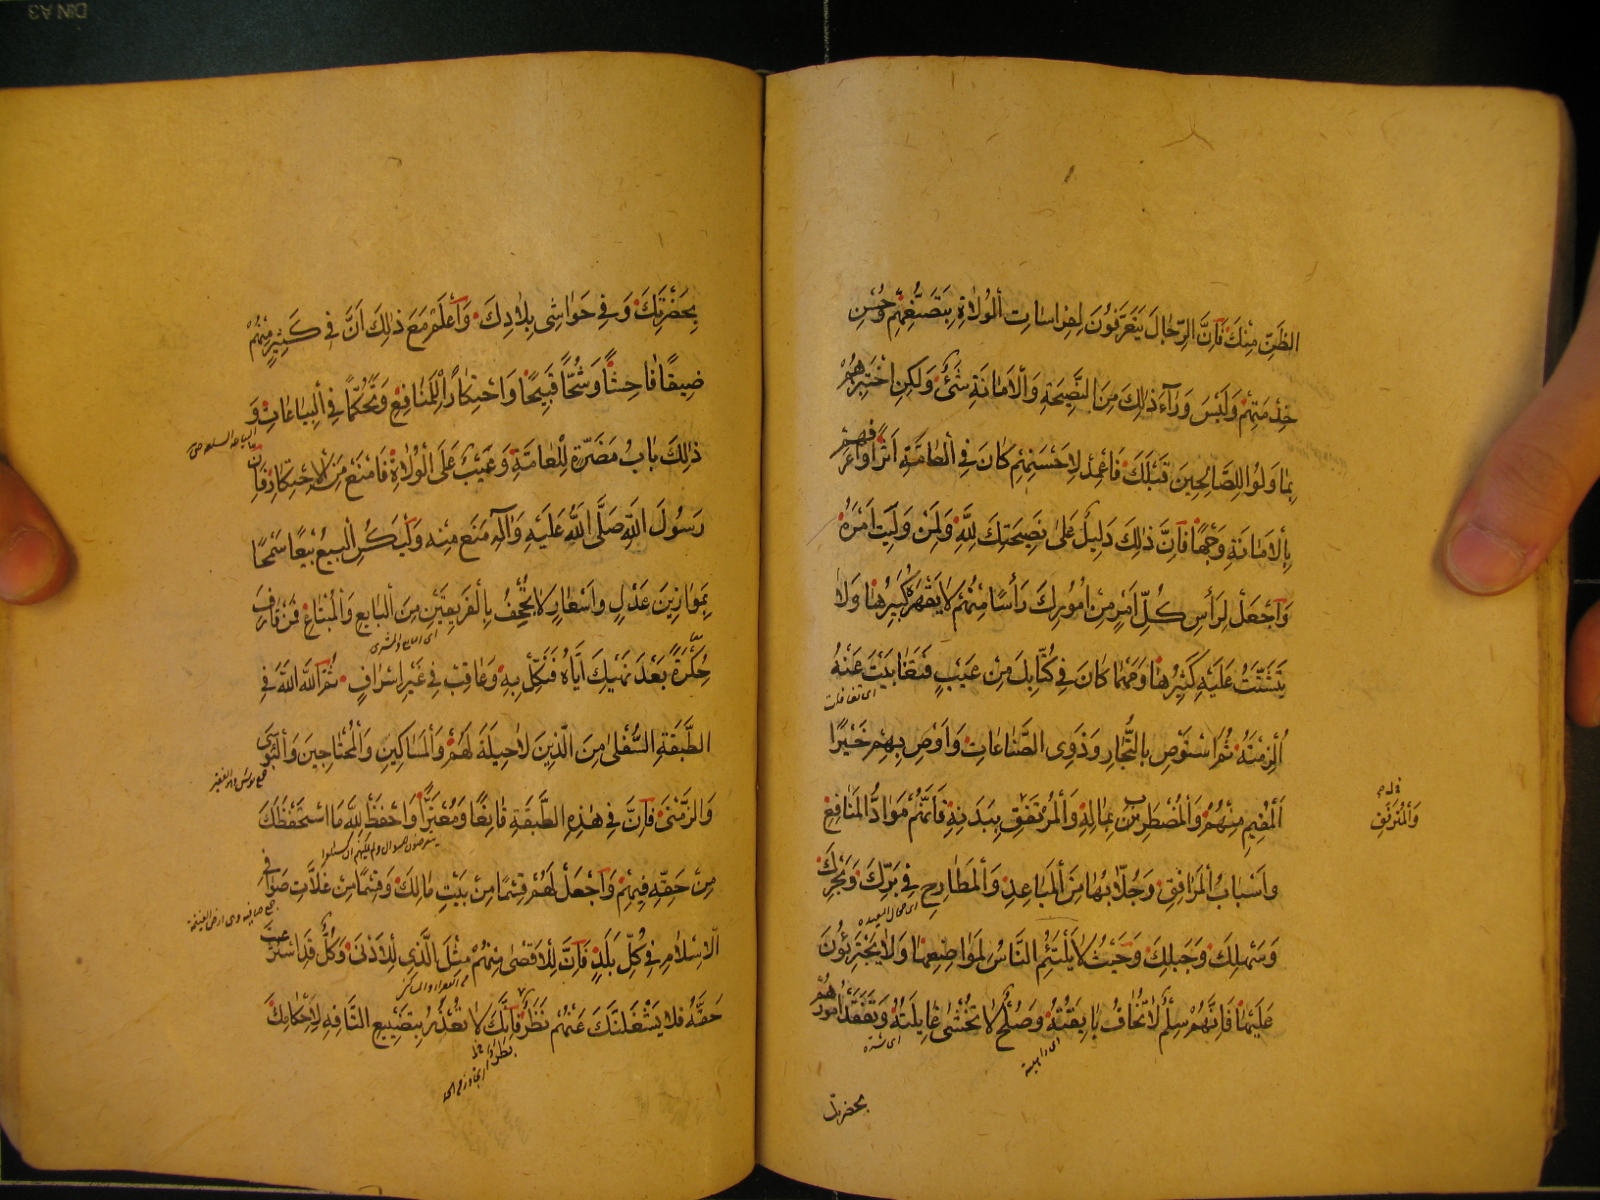 الظَّنِّ مِنْكَ فَإِنَّ الرِّجَالَ يَتَعَرَّفُونَ لِفِرَاسَاتِ الْوُلَاةِ بِتَصَنُّعِهِمْ وَحُسْنِ
خِدْمَتِهِمْ وَلَيْسَ وَرَاءَ ذٰلِكَ مِنَ النَّصِيحَةِ وَالْأَمَانَةِ شَيْءٌ وَلٰكِنِ اخْتَبِرْهُمْ
بِمَا وَلُوا لِلصَّالِحِينَ قَبْلَكَ فَاعْمِدْ لِأَحْسَنِهِمْ كَانَ فِي الْعَامَّةِ أَثَرًا وَأَعْرَفِهِمْ
بِالْأَمَانَةِ وَجْهًا فَإِنَّ ذٰلِكَ دَلِيلٌ عَلَى نَصِيحَتِكَ لِلّٰهِ وَلِمَنْ وَلِيتَ أَمْرَهُ
وَاجْعَلْ لِرَأْسِ كُلِّ أَمْرٍ مِنْ أُمُورِكَ رَأْسًا مِنْهُمْ لَا يَقْهَرُهُ كَبِيرُهَا وَلَا
يَتَشَتَّتُ عَلَيْهِ كَثِيرُهَا وَمَهْمَا كَانَ فِي كُتَّابِكَ مِنْ عَيْبٍ فَتَغَابَيْتَ عَنْهُ
اى تغافلت
أُلْزِمْتَهُ ثُمَّ اسْتَوْصِ بِالتُّجَّارِ وَذَوِي الصِّنَاعَاتِ وَأَوْصِ بِهِمْ خَيْرًا
الْمُقِيمِ مِنْهُمْ وَالْمُضْطَرِبِ بِمَالِهِ وَالْمُرْتَفِقِ بِبَدَنِهِ فَإِنَّهُمْ مَوَادُّ الْمَنَافِعِ
وَالْمُتَرَفِّقِ
وَأَسْبَابُ الْمَرَافِقِ وَجُلَّابُهَا مِنَ الْمَبَاعِدِ وَالْمَطَارِحِ فِي بَرِّكَ وَبَحْرِكَ
وَسَهْلِكَ وَجَبَلِكَ وَحَيْثُ لَا يَلْتَئِمُ النَّاسُ لِمَوَاضِعِهَا وَلَا يَجْتَرِئُونَ
عَلَيْهَا فَإِنَّهُمْ سِلْمٌ لَا تُخَافُ بَائِقَتُهُ وَصُلْحٌ لَا تُخْشَى غَائِلَتُهُ وَتَفَقَّدْ أُمُورَهُمْ
اى داهيته
بحضرتك
بِحَضْرَتِكَ وَفِي حَوَاشِي بِلَادِكَ وَاعْلَمْ مَعَ ذٰلِكَ أَنَّ فِي كَثِيرٍ مِنْهُمْ
ضِيقًا فَاحِشًا وَشُحًّا قَبِيحًا وَاحْتِكَارًا لِلْمَنَافِعِ وَتَحَكُّمًا فِي الْبِيَاعَاتِ وَ
ذٰلِكَ بَابُ مَضَرَّةٍ لِلْعَامَّةِ وَعَيْبٌ عَلَى الْوُلَاةِ فَامْنَعْ مِنَ الْاِحْتِكَارِ فَإِنَّ
رَسُولَ اللّٰهِ صَلَّى اللّٰهُ عَلَيْهِ وَآلِهِ مَنَعَ مِنْهُ وَلْيَكُنِ الْبَيْعُ بَيْعًا سَمْحًا
بِمَوَازِينِ عَدْلٍ وَأَسْعَارٍ لَا تُجْحِفُ بِالْفَرِيقَيْنِ مِنَ الْبَايِعِ وَالْمُبْتَاعِ فَمَنْ قَارَفَ
اى البايع والمشترى
حُكْرَةً بَعْدَ نَهْيِكَ إِيَّاهُ فَنَكِّلْ بِهِ وَعَاقِبْ فِي غَيْرِ إِسْرَافٍ ثُمَّ اللّٰهَ اللّٰهَ فِي
الطَّبَقَةِ السُّفْلَى مِنَ الَّذِينَ لَا حِيلَةَ لَهُمْ وَالْمَسَاكِينِ وَالْمُحْتَاجِينَ وَالْبُؤْسَى
وَالزَّمْنَى فَإِنَّ فِي هٰذِهِ الطَّبَقَةِ قَانِعًا وَمُعْتَرًّا وَاحْفَظْ لِلّٰهِ مَا اسْتَحْفَظَكَ
مِنْ حَقِّهِ فِيهِمْ وَاجْعَلْ لَهُمْ قِسْمًا مِنْ بَيْتِ مَالِكَ وَقِسْمًا مِنْ غَلَّاتِ صَوَافِي
الْإِسْلَامِ فِي كُلِّ بَلَدٍ فَإِنَّ لِلْأَقْصَى مِنْهُمْ مِثْلَ الَّذِي لِلْأَدْنَى وَكُلٌّ قَدِ اسْتُرْعِيتَ
حَقَّهُ فَلَا يَشْغَلَنَّكَ عَنْهُمْ نَظَرٌ فَإِنَّكَ لَا تُعْذَرُ بِتَضْيِيعِ التَّافِهِ لِإِحْكَامِكَ